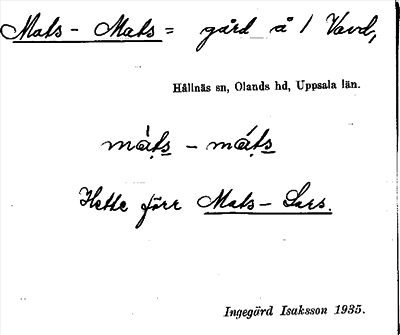 Mats - Mats = gård å / Vavd,
Hållnäs sn, Olands hd, Uppsala län.
màts - máts
Hette förr Mats - Lars.
Ingegärd Isaksson 1935.